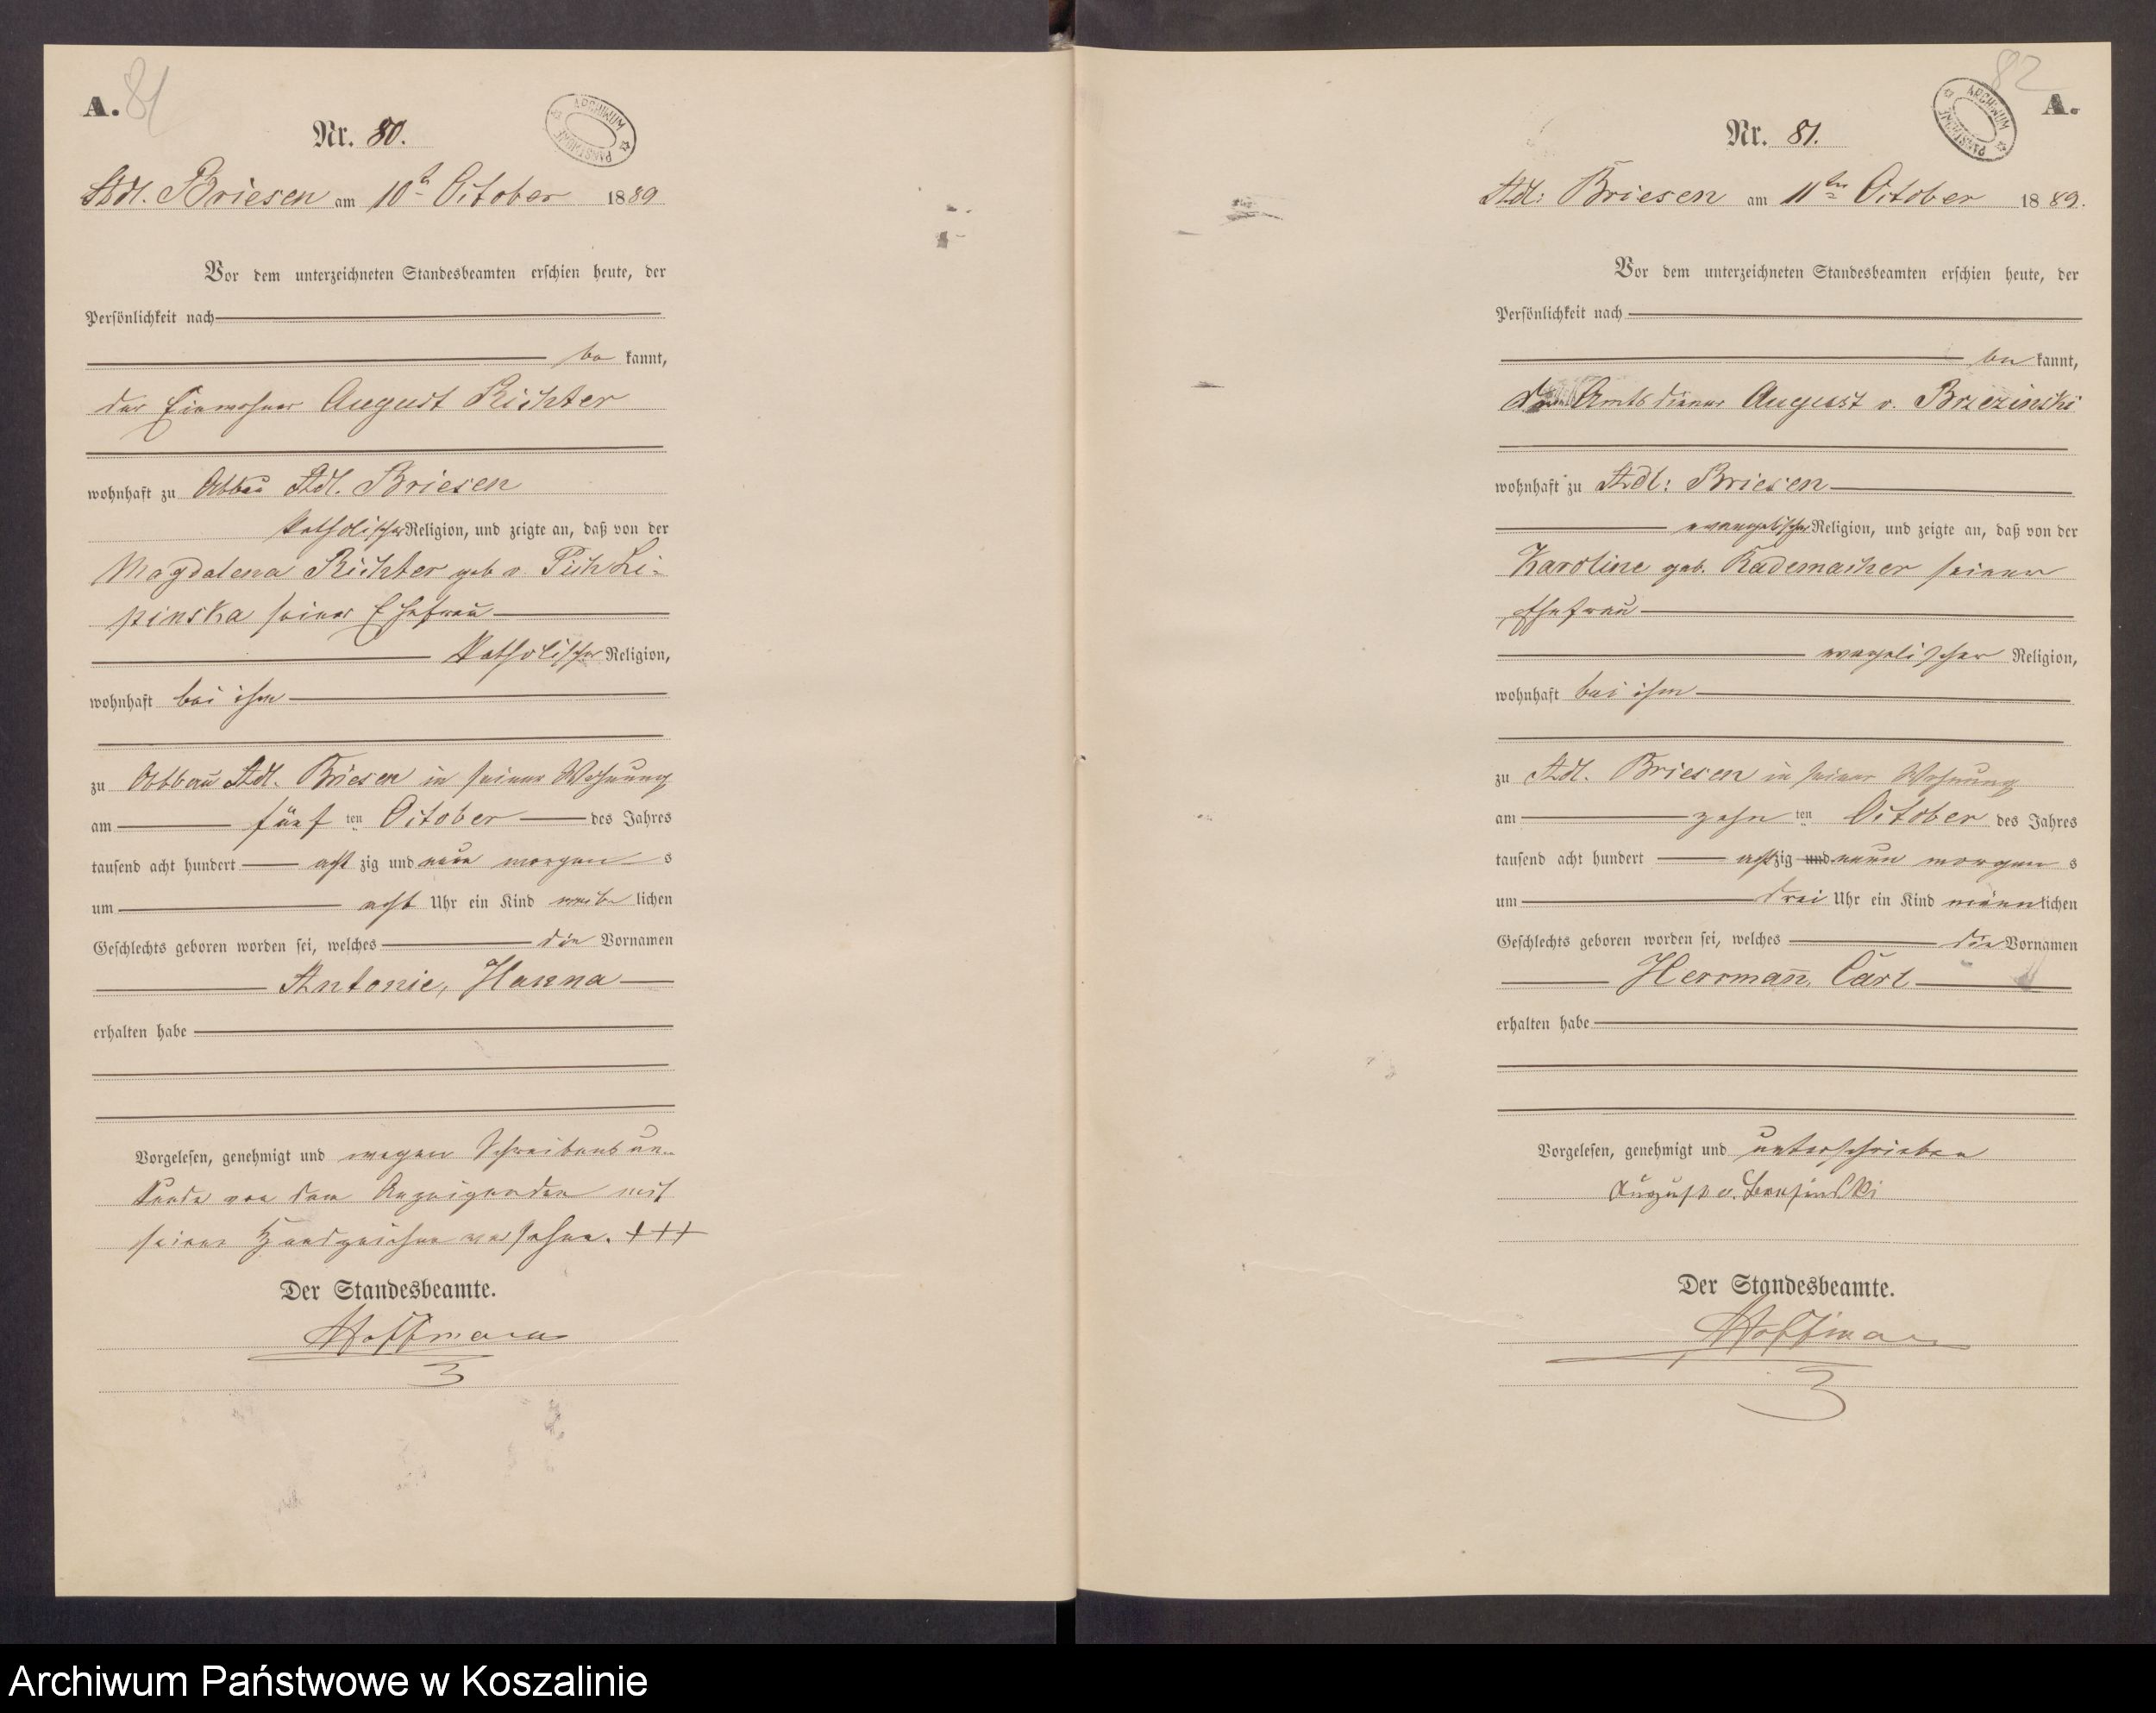 A.
81
Nr. 80.
ARCHIWUM PAŃSTWOWE
Adl. Briesen am 10t October 1889
Vor dem unterzeichneten Standesbeamten erschien heute, der
Persönlichkeit nach
be kannt,
der Einwohner August Richter
wohnhaft zu Abbau Adl. Briesen
katholischer Religion, und zeigte an, daß von der
Magdalena Richter geb v. Pich Li-
pinska seiner Ehefrau
katholischer Religion,
wohnhaft bei ihm
zu Abbau Adl. Briesen in seiner Wohnung
am fünf ten October des Jahres
tausend acht hundert acht zig und neun morgen s
um acht Uhr ein Kind weib lichen
Geschlechts geboren worden sei, welches die Vornamen
Antonie, Hanna
erhalten habe
Vorgelesen, genehmigt und wegen Schreibensun-
kunde von dem Anzeigenden mit
seinem Handzeichen versehen. +++
Der Standesbeamte.
Hoffmann
82
A.
Nr. 81.
ARCHIWUM PAŃSTWOWE
Adl: Briesen am 11ten October 1889.
Vor dem unterzeichneten Standesbeamten erschien heute, der
Persönlichkeit nach
be kannt,
der Amtsdiener August v. Brzezinski
wohnhaft zu Adl: Briesen
evangelischer Religion, und zeigte an, daß von der
Karoline geb. Rademacher seiner
Ehefrau
evangelischer Religion,
wohnhaft bei ihm
zu Adl. Briesen in seiner Wohnung
am zehn ten October des Jahres
tausend acht hundert acht zig und neun morgen s
um drei Uhr ein Kind männ lichen
Geschlechts geboren worden sei, welches die Vornamen
Herrmann, Carl
erhalten habe
Vorgelesen, genehmigt und unterschrieben
August v.
Der Standesbeamte.
Hoffmann
Archiwum Państwowe w Koszalinie